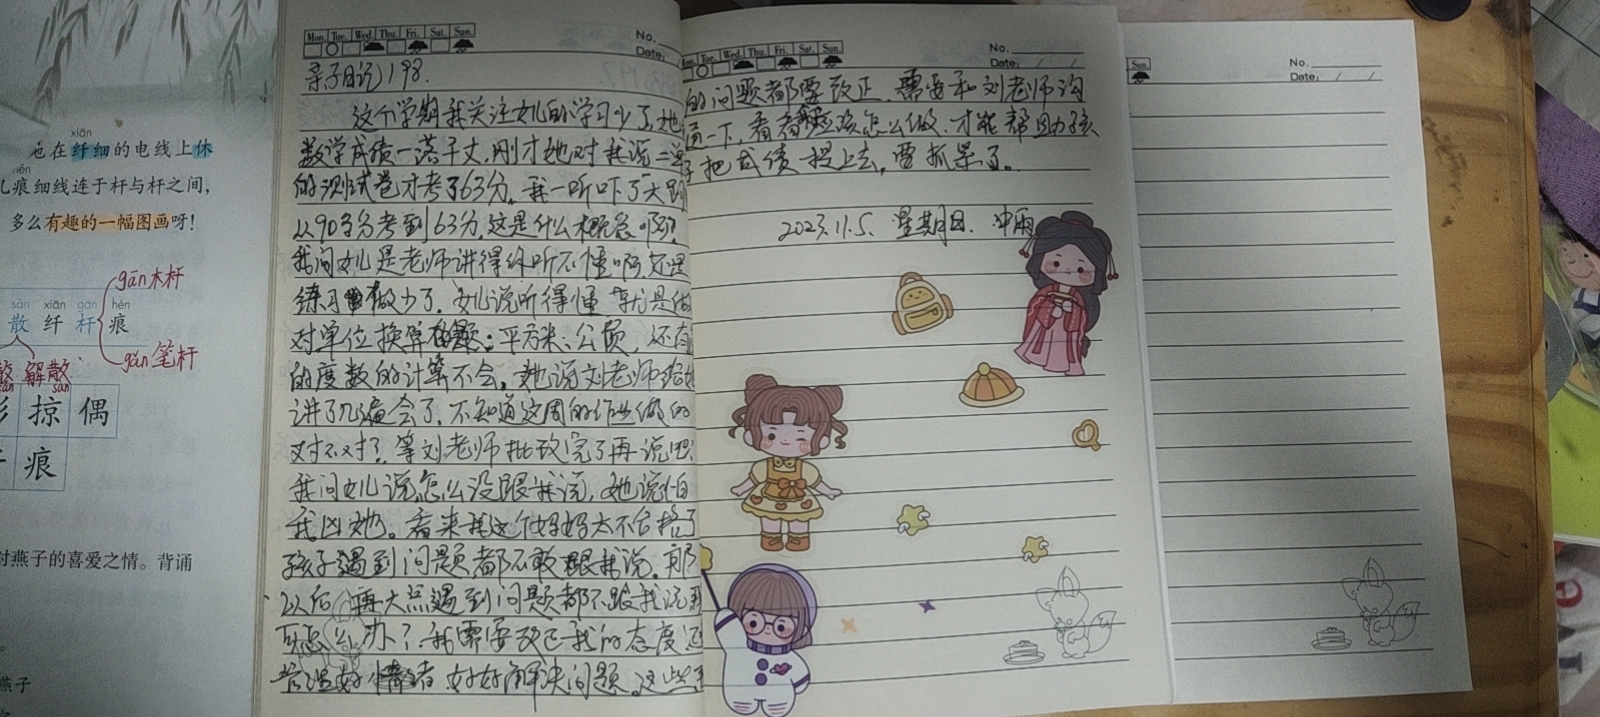 xiān
在纤细的电线上休
痕细线连于杆与杆之间，
多么有趣的一幅图画呀！
gān木杆
sàn xiān gān hén
散 纤 杆 痕
gǎn笔杆
散 解散
sǎn
掠 偶
痕
对燕子的喜爱之情。背诵
燕子
Mon. Tue. Wed. Thu. Fri. Sat. Sun.
No.
Date:
亲子日记198.
这个学期我关注女儿的学习少了，她
数学成绩一落千丈，刚才她对我说二单
的测试卷才考了63分。我一听吓了一大跳
从90多分考到63分，这是什么概念啊？
我问女儿是老师讲得你听不懂啊，还是
练习做少了。女儿说听得懂，就是做
对单位换算的题：平方米、公顷，还有
的度数的计算不会。她说刘老师给她
讲了几遍会了，不知道这周的作业做的
对不对？等刘老师批改完了再说吧
我问女儿说，怎么没跟我说，她说怕
我凶她。看来我这个妈妈太不合格了
孩子遇到问题都不敢跟我说。那
以后再大点遇到问题都不跟我说
可怎么办？我需要改正我的态度还
管理好情绪，好好解决问题。这些
Wed. Thu. Fri. Sat. Sun.
No.
Date: / /
的问题都要改正，需要和刘老师沟
通一下，看看应该怎么做，才能帮助孩
子把成绩提上去，要抓紧了。
2023.11.5. 星期日. 中雨
Sun.
No.
Date: / /